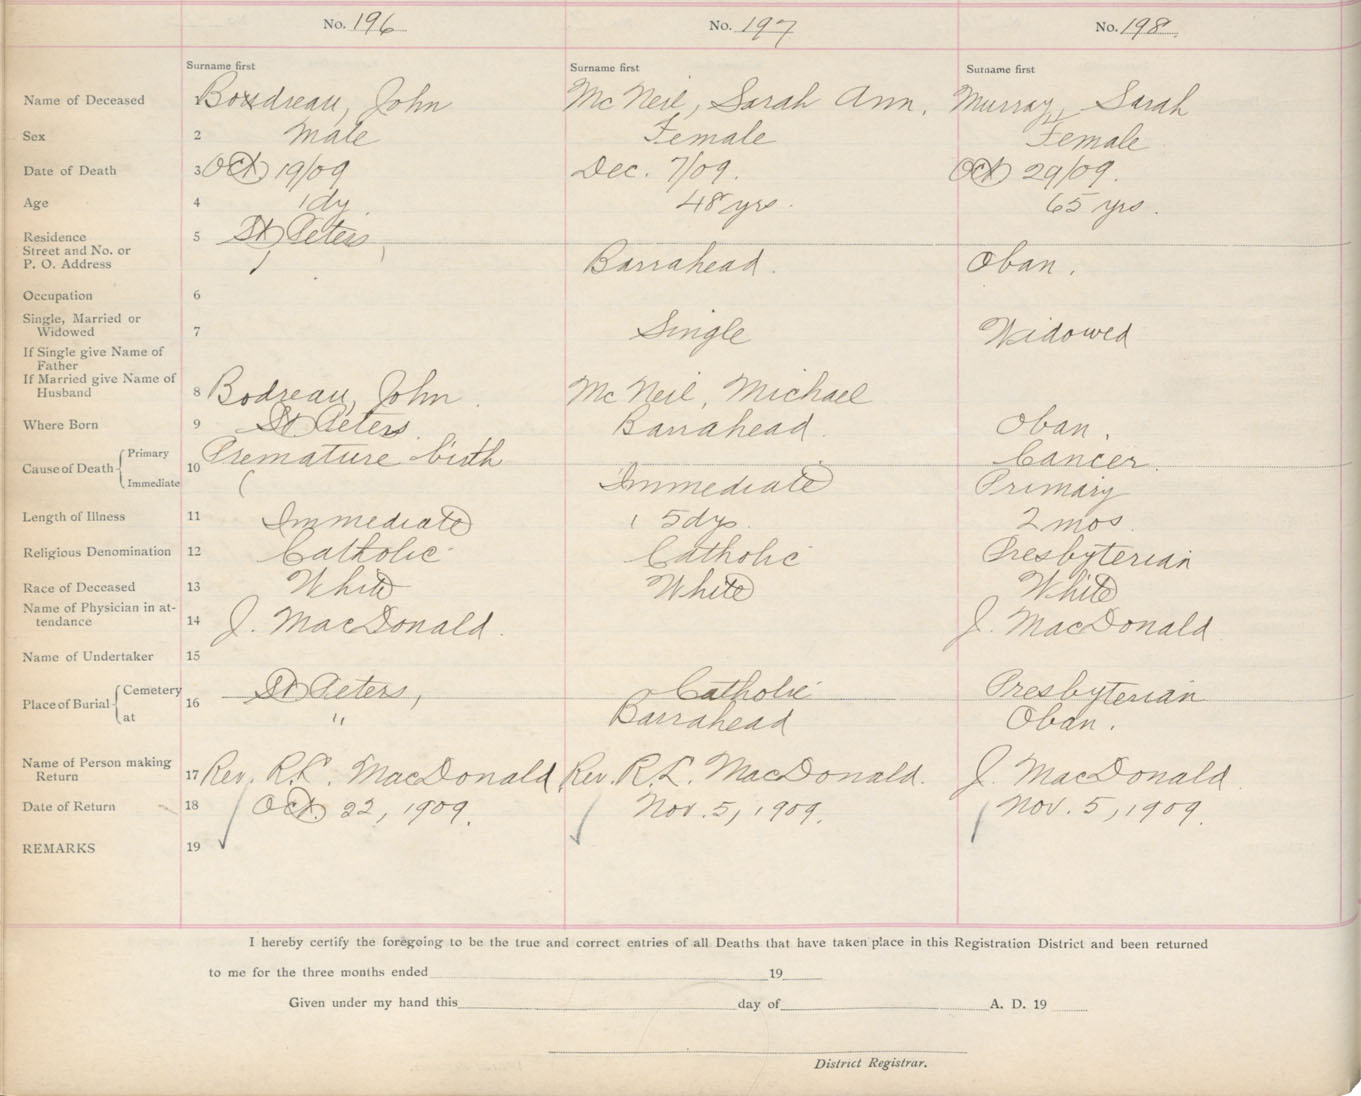 No. 196 No. 197 No. 198
Surname first Surname first Surname first
Name of Deceased 1 Boudreau, John Mc Neil, Sarah Ann. Murray, Sarah
Sex 2 Male Female Female
Date of Death 3 Oct 19/09 Dec. 7/09. Oct 29/09.
Age 4 1dy. 48 yrs. 65 yrs.
Residence 5 St Peters,
Street and No. or
P. O. Address Barrahead. Oban.
Occupation 6
Single, Married or
Widowed 7 Single Widowed
If Single give Name of
Father
If Married give Name of
Husband 8 Bodreau, John. Mc Neil, Michael
Where Born 9 St Peters. Barrahead. Oban.
Cause of Death Primary 10 Premature birth Cancer.
Immediate Immediate Primary
Length of Illness 11 Immediate 5dys. 2 mos.
Religious Denomination 12 Catholic Catholic Presbyterian
Race of Deceased 13 White White White
Name of Physician in at-
tendance 14 J. MacDonald. J. MacDonald
Name of Undertaker 15
Place of Burial Cemetery 16 St Peters, Catholic Presbyterian
at " Barrahead Oban.
Name of Person making
Return 17 Rev. R.L. MacDonald Rev. R.L. MacDonald. J. MacDonald.
Date of Return 18 Oct. 22, 1909. Nov. 5, 1909. Nov. 5, 1909.
REMARKS 19
I hereby certify the foregoing to be the true and correct entries of all Deaths that have taken place in this Registration District and been returned
to me for the three months ended 19
Given under my hand this day of A. D. 19
District Registrar.